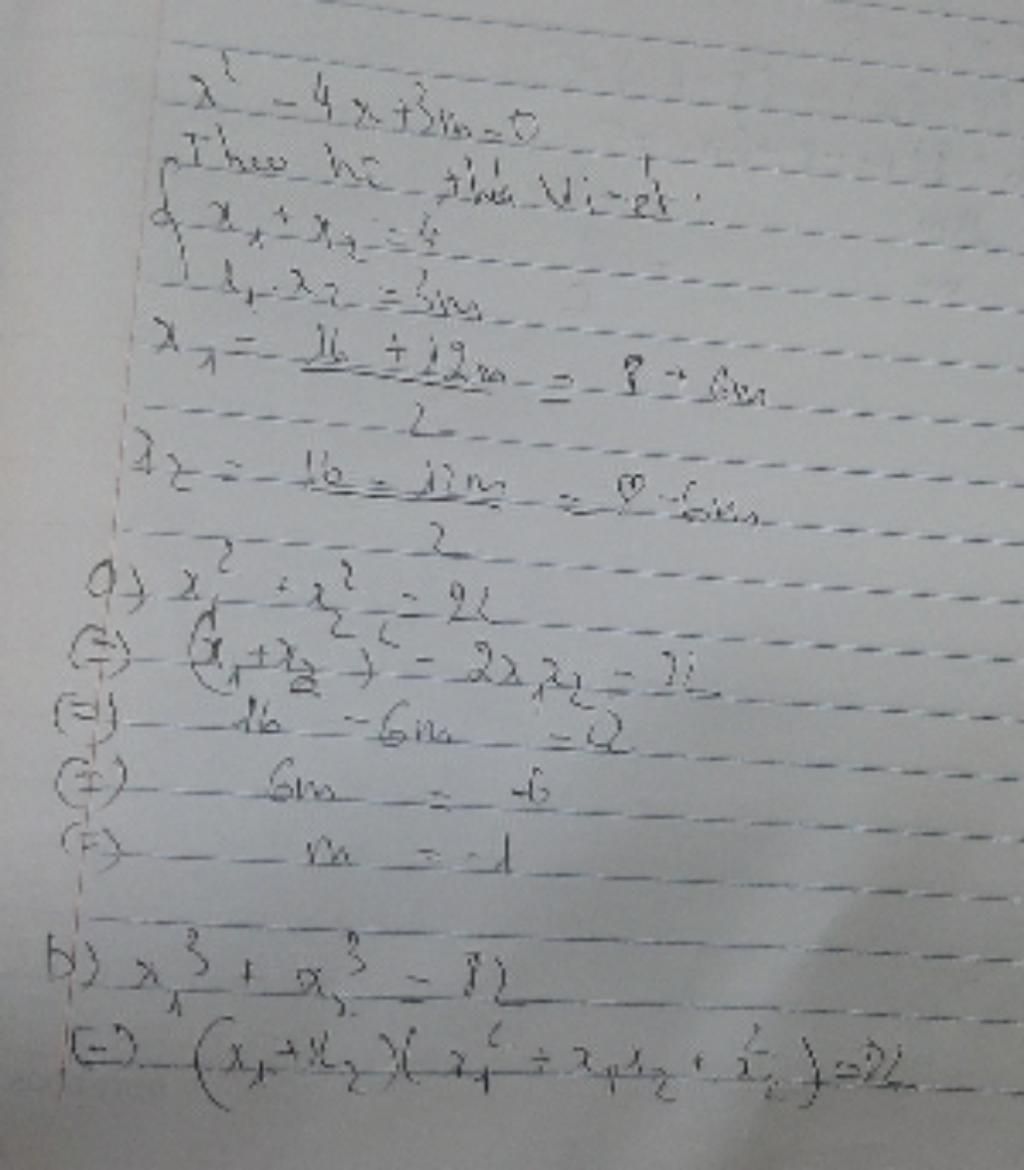 x² - 4x + 3m = 0
Theo hệ thức Vi-ét:
x₁ + x₂ = 4
x₁ . x₂ = 3m
x₁ = (16 + 12m)/2 = 8 + 6m
x₂ = (16 - 12m)/2 = 8 - 6m
a) x₁² + x₂² = 22
(=) (x₁ + x₂)² - 2x₁x₂ = 22
(=) 16 - 6m = 22
(=) 6m = -6
(=) m = -1
b) x₁³ + x₂³ =
(=) (x₁ + x₂)(x₁² + x₁x₂ + x₂²) =